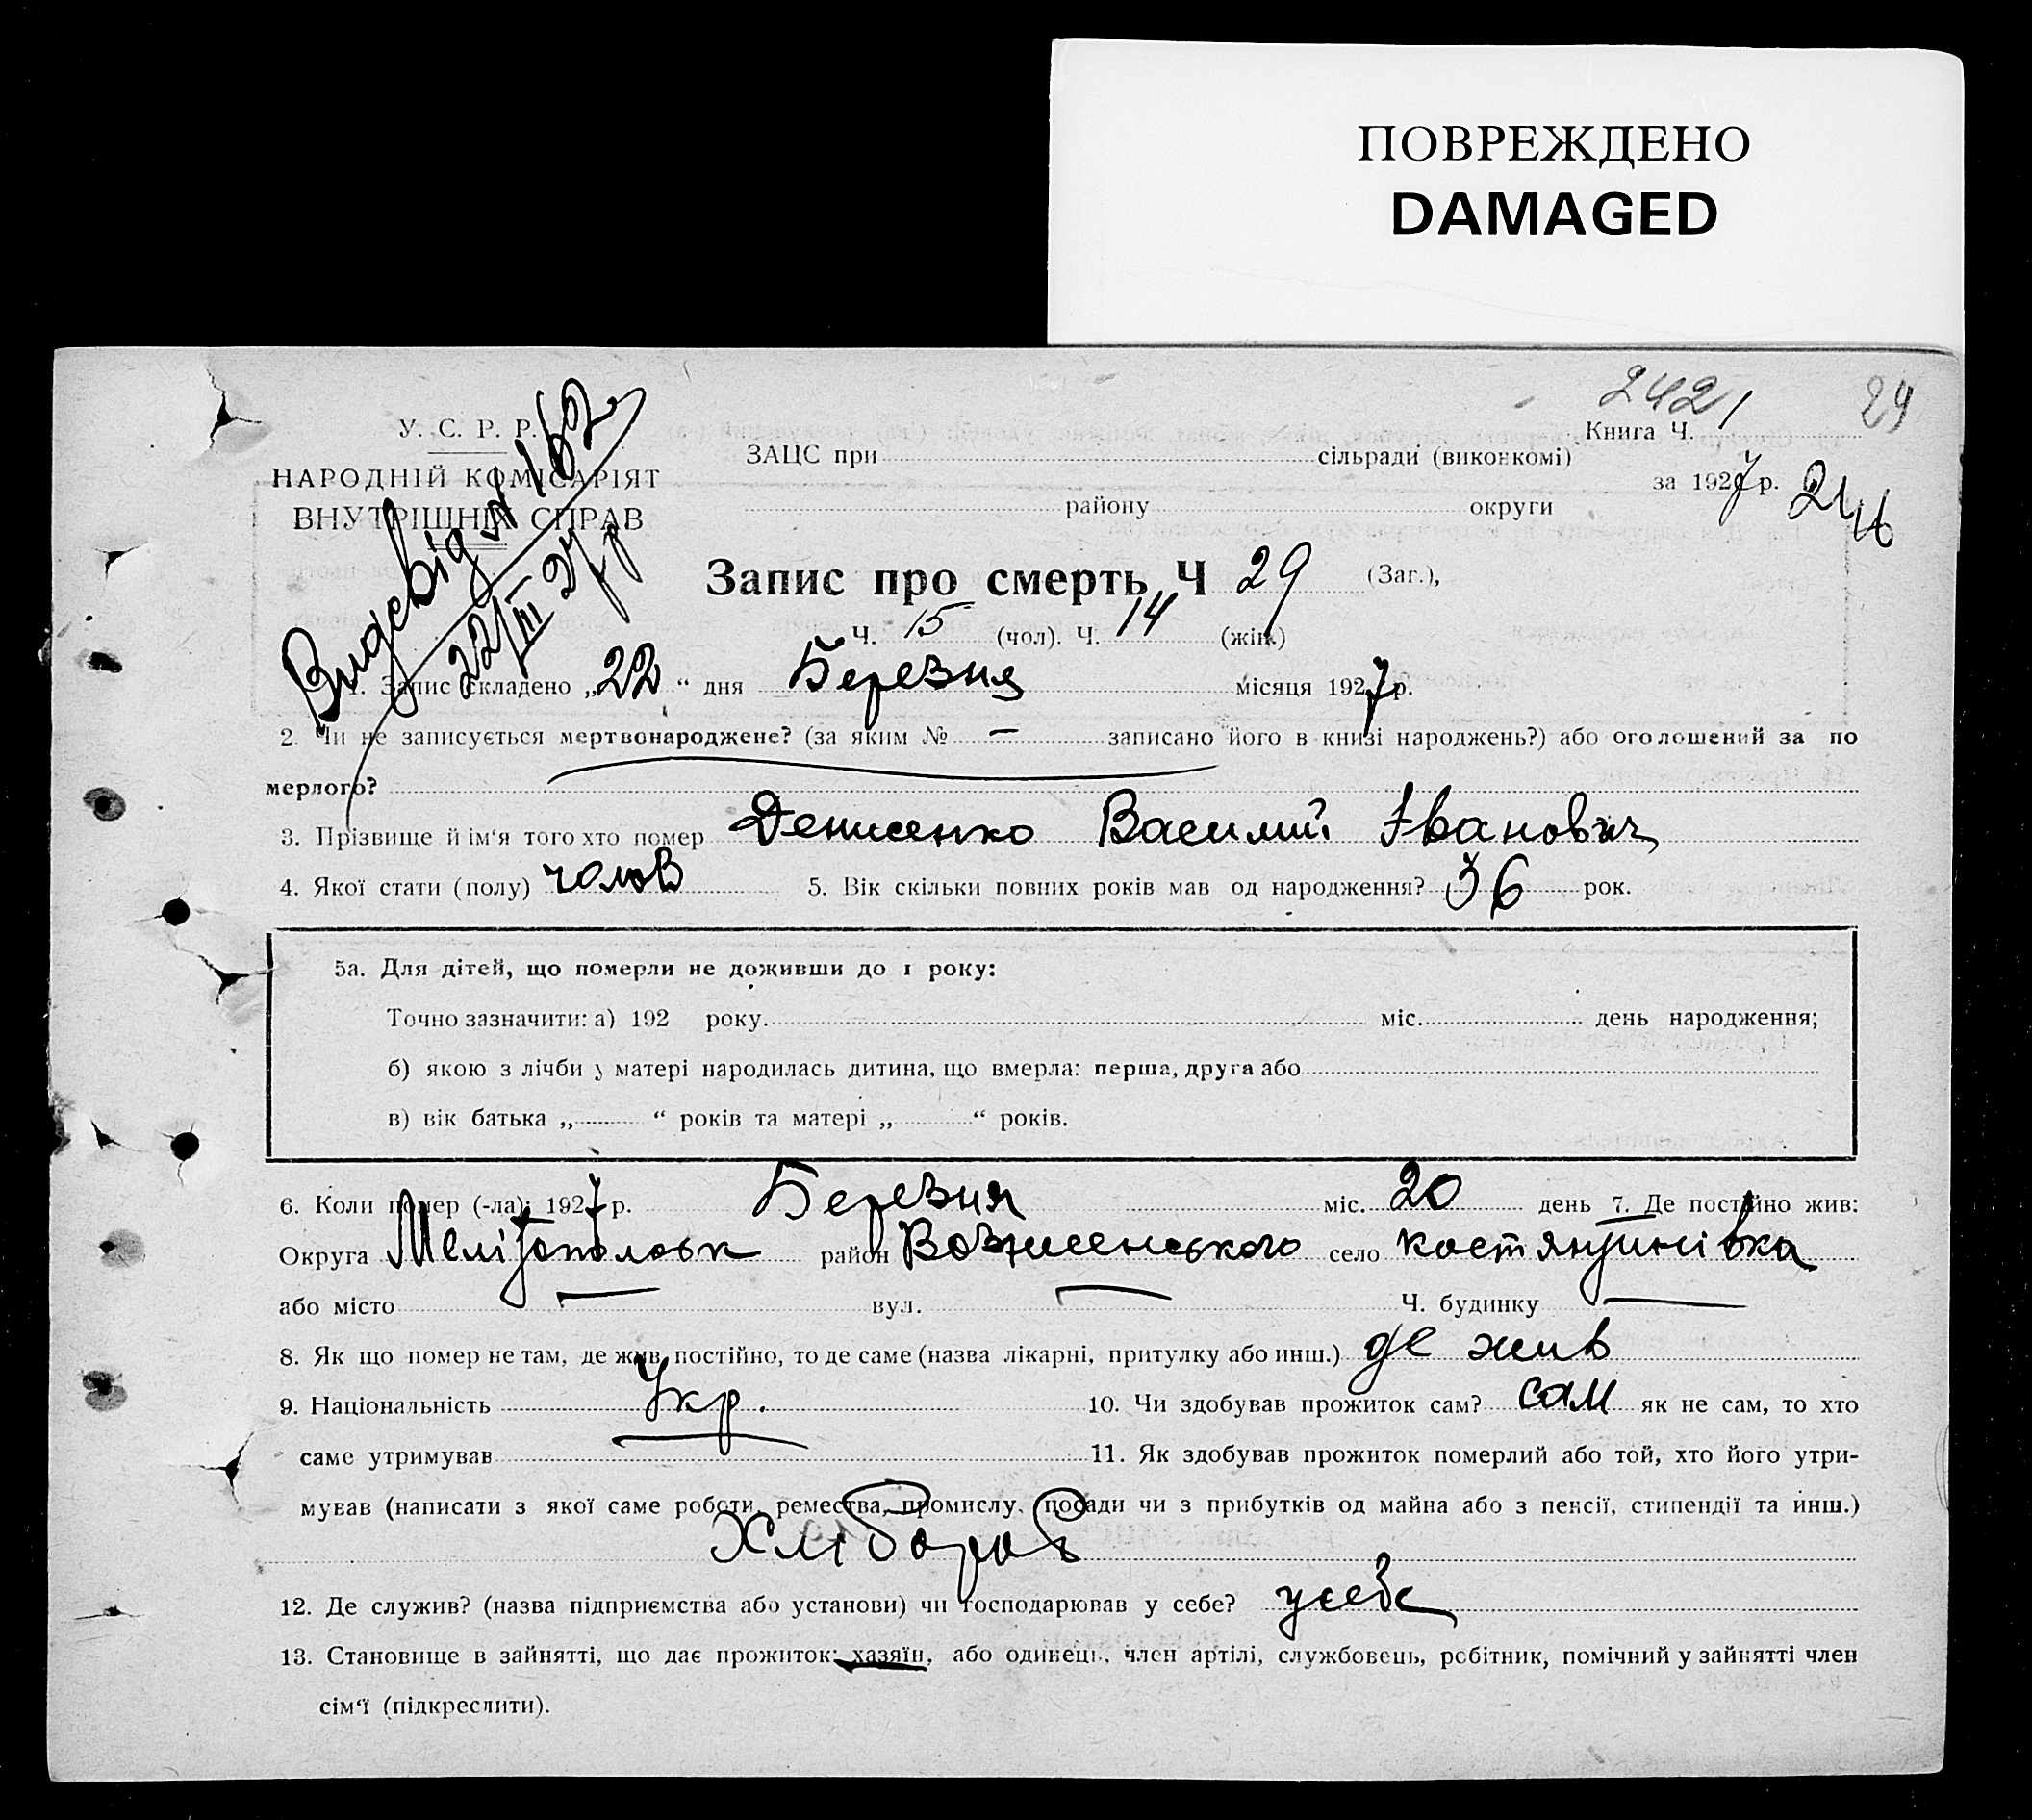 ПОВРЕЖДЕНО
DAMAGED
2421
29
Книга Ч.
У. С. Р. Р.
НАРОДНІЙ КОМІСАРІЯТ
ВНУТРІШНІХ СПРАВ
ЗАЦС при сільради (виконкомі)
за 1927 р.
району округи
162
22/III 27 р
Запис про смерть Ч 29 (Заг.),
Ч. 15 (чол). Ч. 14 (жін.)
1. Запис складено „22“ дня Березня місяця 1927 р.
2. Чи не записується мертвонароджене? (за яким № — записано його в книзі народжень?) або оголошений за по
мерлого?
3. Прізвище й ім‘я того хто помер Денисенко Василий Іванович
4. Якої стати (полу) чолов 5. Вік скільки повних років мав од народження? 36 рок.
5а. Для дітей, що померли не доживши до 1 року:
Точно зазначити: а) 192 року. міс. день народження;
б) якою з лічби у матері народилась дитина, що вмерла: перша, друга або
в) вік батька „ “ років та матері „ “ років.
6. Коли помер (-ла): 1927 р. Березня міс. 20 день 7. Де постійно жив:
Округа Мелітопольск район Вознесенського село Костянтинівка
або місто — вул. — Ч. будинку —
8. Як що помер не там, де жив постійно, то де саме (назва лікарні, притулку або инш.) де жив
9. Національність Укр. 10. Чи здобував прожиток сам? сам як не сам, то хто
саме утримував 11. Як здобував прожиток померлий або той, хто його утри-
мував (написати з якої саме роботи, ремества, промислу, посади чи з прибутків од майна або з пенсії, стипендії та инш.)
Хлібороб
12. Де служив? (назва підприємства або установи) чи господарював у себе? у себе
13. Становище в зайнятті, що дає прожиток: хазяїн, або одинець, член артілі, службовець, робітник, помічний у зайнятті член
сім‘ї (підкреслити).